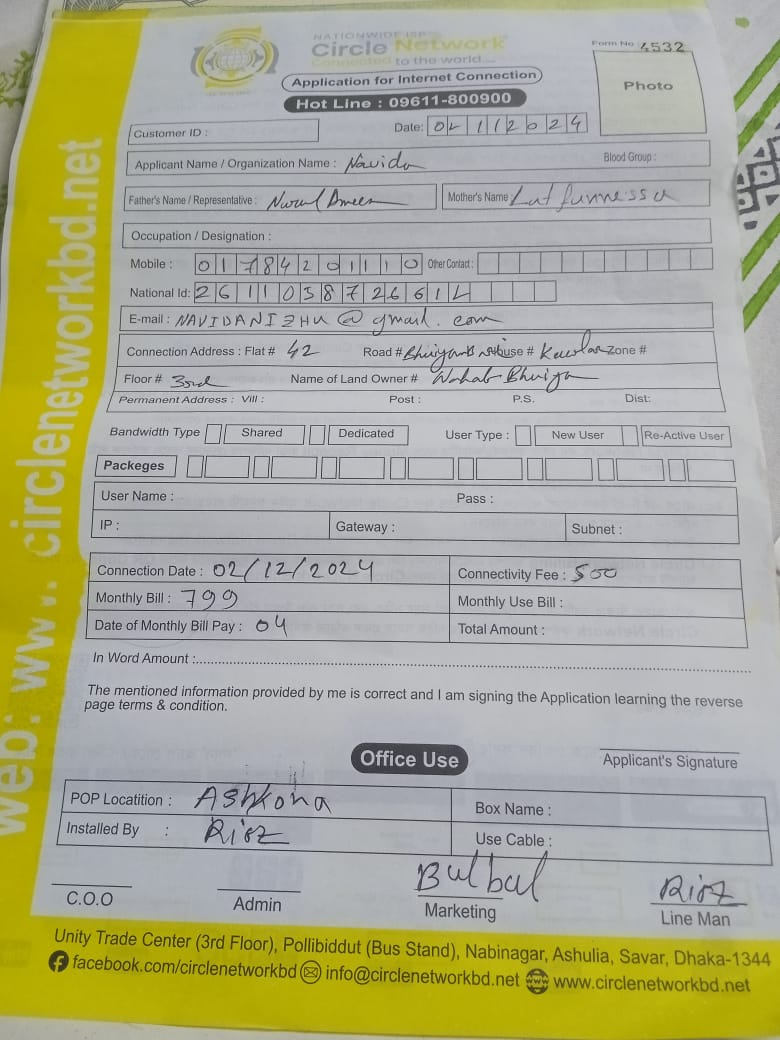 NATIONWIDE ISP
Circle Network
Connected to the world...
Form No 4532
Application for Internet Connection
Photo
Hot Line : 09611-800900
Customer ID :
Date:
Applicant Name / Organization Name : Navida
Blood Group :
Father's Name / Representative : Nurul Ameen
Mother's Name Lutfunnessa
Occupation / Designation :
Mobile : 01784201110 Other Contact :
National Id:
E-mail : NAVIDANIZHU@gmail.com
Connection Address : Flat # 42 Road # House # Zone #
Floor # 3rd Name of Land Owner # Wahab Bhuiya
Permanent Address : Vill : Post : P.S. Dist:
Bandwidth Type Shared Dedicated User Type : New User Re-Active User
Packeges
User Name : Pass :
IP : Gateway : Subnet :
Connection Date : 02/12/2024 Connectivity Fee : 500
Monthly Bill : 799 Monthly Use Bill :
Date of Monthly Bill Pay : 04 Total Amount :
In Word Amount :
The mentioned information provided by me is correct and I am signing the Application learning the reverse
page terms & condition.
Office Use
Applicant's Signature
POP Locatition : Ashkona Box Name :
Installed By : Use Cable :
Bulbul
C.O.O Admin Marketing Line Man
Unity Trade Center (3rd Floor), Pollibiddut (Bus Stand), Nabinagar, Ashulia, Savar, Dhaka-1344
facebook.com/circlenetworkbd info@circlenetworkbd.net www.circlenetworkbd.net
web: www.circlenetworkbd.net